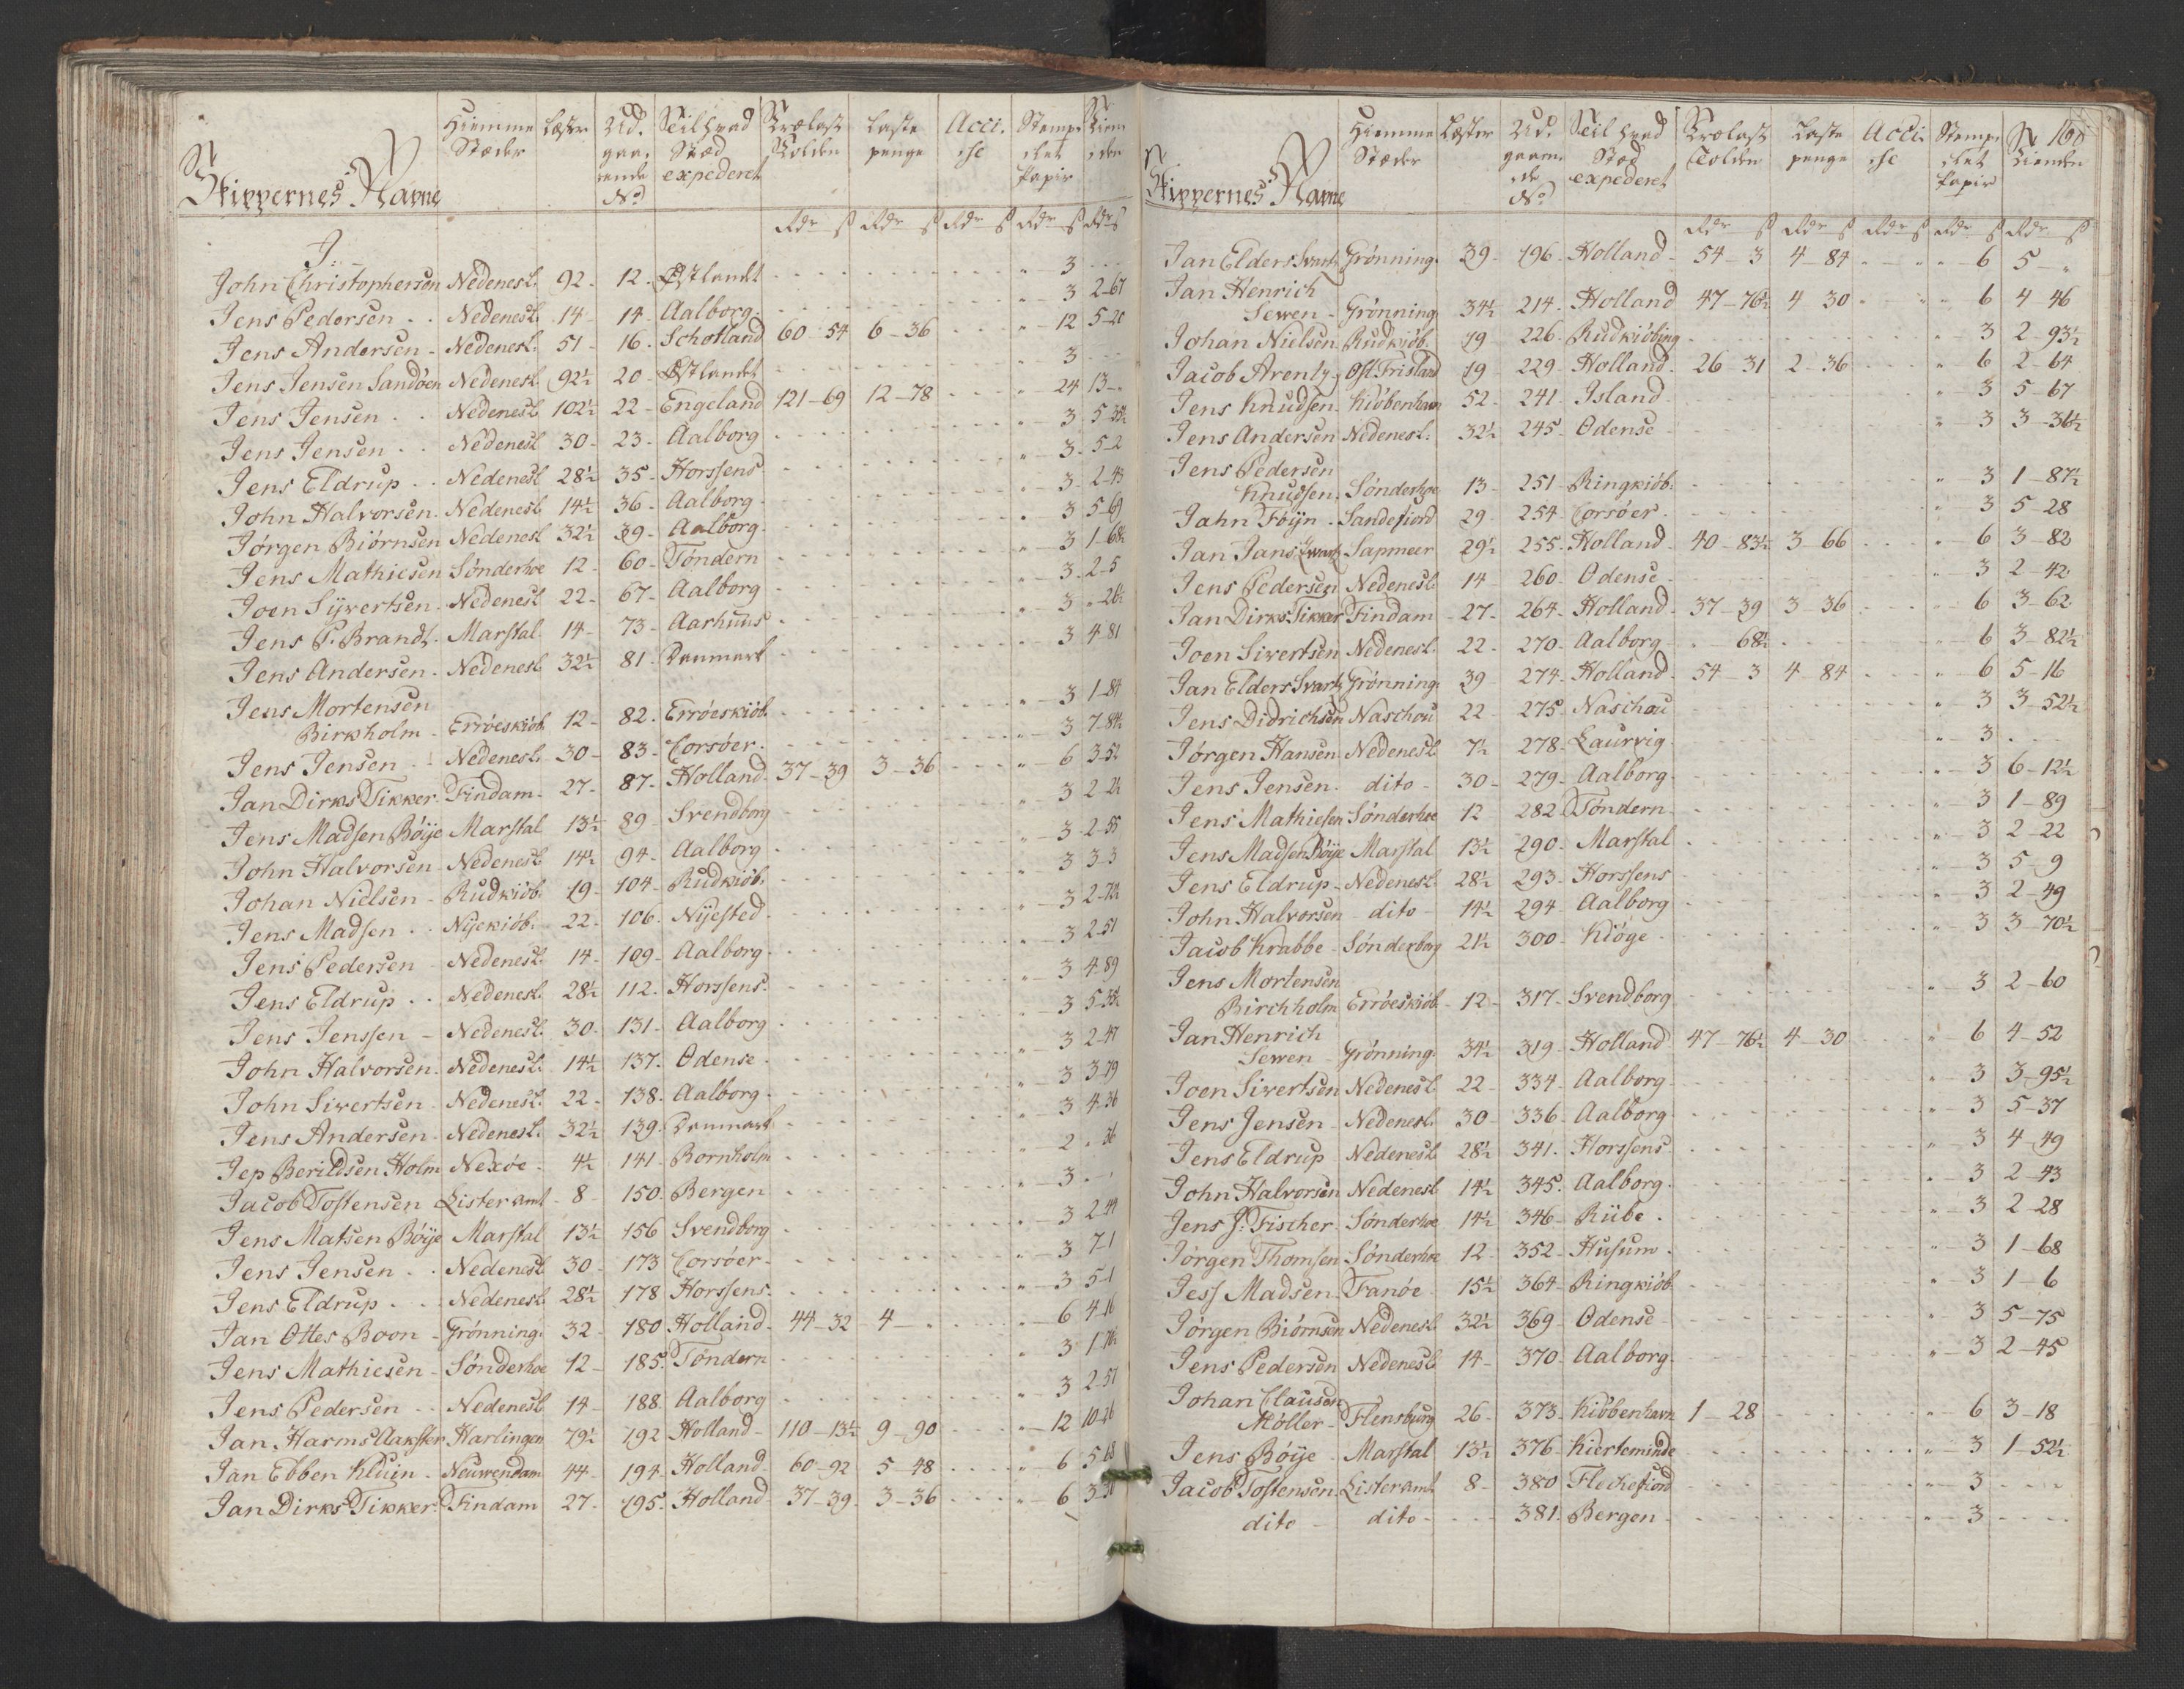 Skippernes Navne Hiemme Stæder Læster Ud. gaa, rende No Til hvad Stæd expederet Trælast Tolden Laste penge Acci, se Stemp, let Papir
Rdr ß Rdr ß Rdr ß Rdr ß Rdr ß
J.
John Christophersen Nedenesl. 92 - 12 - Østlandet 3
Jens Pedersen Nedenesl. 14 - 14 - Aalborg 3 2-67
Jens Andersen - Nedenesl. 51 - 16. Schotland 60 54 6-36 12 5-20
Jens Jensen Sandöen Nedenesl. 92½ 20 - Østlandet 3
Jens Jensen Nedenesl. 102½ 22 - Engeland 121-69 12-78 24 13
Jens Jensen Nedenesl 30 - 23 - Aalborg 3
Jens Eldrup Nedenesl 28½ 35 - Horssens 3 - 5-2
John Halvorsen - Nedenesl 14½ 36 - Aalborg 3 - 2-43
Jörgen Biörnsen Nedenesl 32½ 39 - Aalborg 3 5-69
Jens Mathiesen Sönderhoe 12 - 60 - Töndern 3
Joen Sijvertsen - Nedenesl 22 - 67 - Aalborg 3 - 2-5
Jens P. Brandt - Marstal 14 - 73 - Aarhuus 3
Jens Andersen - Nedenesl 32½ 81 - Danmark 3 4-81
Jens Mortensen
Birkholm - Erröeskiöb. 12 - 82. Erröeskiöb. 3 1-84
Jens Jensen Nedenesl. 30 - 83 - Corsöer 3 7-84½
Jan Dirks Tikker. Findam - 27 - 87 - Holland 37-39 3-36 6 3-52
Jens Madsen Böije Marstal 13½ 89 - Svendborg 3
John Halvorsen - Nedenesl 14½ 94 - Aalborg 3 - 2-55
Johan Nielsen - Rudkiöb. 19 - 104 - Rudkiöb. 3 3-3
Jens Madsen Nijekiöb. 22 - 106. Nijested 3
Jens Pedersen - Nedenesl. 14 - 109 - Aalborg 3 2-51
Jens Eldrup Nedenesl. 28½ 112. Horssens. 3 4-89
Jens Jenssen - Nedenesl. 30 - 131 - Aalborg 3
John Halvorsen - Nedenesl. 14½ 137. Odense 3 2-47
John Sivertsen - Nedenesl. 22 - 138. Aalborg 3 3-19
Jens Andersen - Nedenesl. 32½ 139. Danmark 3 4-36
Jep Berildsen Holm Nexöe - 4½ 141 - Bornholm 2 36
Jacob Tostensen Lister amt - 8 - 150. Bergen 3
Jens Matsen Böije Marstal 13½ 156 Svendborg 3 2-44
Jens Jensen Nedenesl 30 - 173 Corsöer 3 7-1
Jens Eldrup Nedenesl. 28½ 178 Horssens. 3 5-1
Jan Ottes Boon - Grönning. 32 - 180 Holland - 44-32 4 6 4-16
Jens Mathiesen - Sönderhoe 12 - 185. Töndern 3
Jens Pedersen Nedenesl 14 - 188. Aalborg 3 2-51
Jan Harms Harlingen 79½ 192 Holland - 110-13½ 9-90 12 10-26
Jan Ebben Kluin - Neuwendam 44 - 194. Holland 60-92 5-48 6 5-18
Jan Dirks Tikker. Findam 27 - 195. Holland 37-39 - 3-36 6
Skippernes Navne Hiemme Stæder Læster Ud. gaaen, de No Til hvad Stæd expederet Trælast Tolden Laste penge Acci, se Stemp, let Papir 160
Rdr ß Rdr ß Rdr ß Rdr ß Rdr ß
Jan Elders Svart Grönning. 39 - 196 - Holland - 54-3 4-84 6 5
Jan Henrich
Sewen - Grönning. 34½ 214 - Holland 47-76½ 4-30 6 4-46
Johan Nielsen Rudkiöb. 19 226 - Rudkiöbing 3 2-93½
Jacob Arentz Ost Frisland 19 - 229 - Holland 26-31 2-36 6 2-64
Jens Knudsen Kiöbenhavn 52 - 241 - Island 3 5-67
Jens Andersen Nedenesl. 32½ 245 - Odense 3 3-36½
Jens Pedersen
Knudsen Sönderhoe 13 - 251 - Ringkiöb. 3 1-87½
Jahn Föijn - Sandefiord 29 - 254 - Corsöer 3 5-28
Jan Jans Swart Sapmeer 29½ 255. Holland 40-83½ 3-66 6 3-82
Jens Pedersen Nedenesl. 14 260 - Odense 3 2-42
Jan Dirks Tikker Findam - 27 - 264 - Holland 37-39 3-36 6 3-62
Joen Sivertsen Nedenesl. 22 - 270 - Aalborg 68½ 6 3-82½
Jan Elders Svart Grönning. 39 274 - Holland 54-3 4-84 6 5-16
Jens Didrichsen Naschou 22 - 275 - Naschou 3 3-52½
Jörgen Hansen Nedenesl. 7½ 278 - Laurvig 3
Jens Jensen - dito - 30 - 279 - Aalborg 3 6-12½
Jens Mathiesen Sönderhoe 12 282 Töndern 3 1-89
Jens Madsen Böije Marstal 13½ 290 - Marstal 3 2-22
Jens Eldrup - Nedenesl. 28½ 293 - Horssens 3 5-9
John Halvorsen - dito - 14½ 294 - Aalborg 3 2-49
Jacob Krabbe - Sönderborg 21½ 300 - Kiöge 3 3-70½
Jens Mortensen
Birchholm Erröeskiöb. - 12 - 317 - Svendborg 3 2-60
Jan Henrich
Sewen - Grönning. 34½ 319 - Holland 47-76½ 4-30 6 4-52
Joen Sivertsen Nedenesl. 22 - 334 - Aalborg 3 3-95½
Jens Jensen - Nedenesl. 30 - 336 - Aalborg 3 5-37
Jens Eldrup Nedenesl. 28½ 341. Horssens. 3 4-49
John Halvorsen Nedenesl. 14½ 345. Aalborg. 3 2-43
Jens J. Fischer - Sönderhoe 14½ 346 - Riibe 3 2-28
Jörgen Thomsen Sönderhoe 12 - 352 - Husum 3 1-68
Jess Madsen - Fanöe 15½ 364 - Ringkiöb. 3 1-6
Jörgen Biörnsen Nedenesl. 32½ 369 - Odense - 3 5-75
Jens Pedersen Nedenesl. 14 - 370 - Aalborg 3 2-45
Johan Clausen
Möller - Flensburg 26 - 373 - Kiöbenhavn 1-28 6 3-18
Jens Böije - Marstal 13½ 376 - Kierteminde 3 1-52½
Jacob Tostensen Lister amt 8 - 380 Flechefiord 3
dito - dito - 381. Bergen - 3